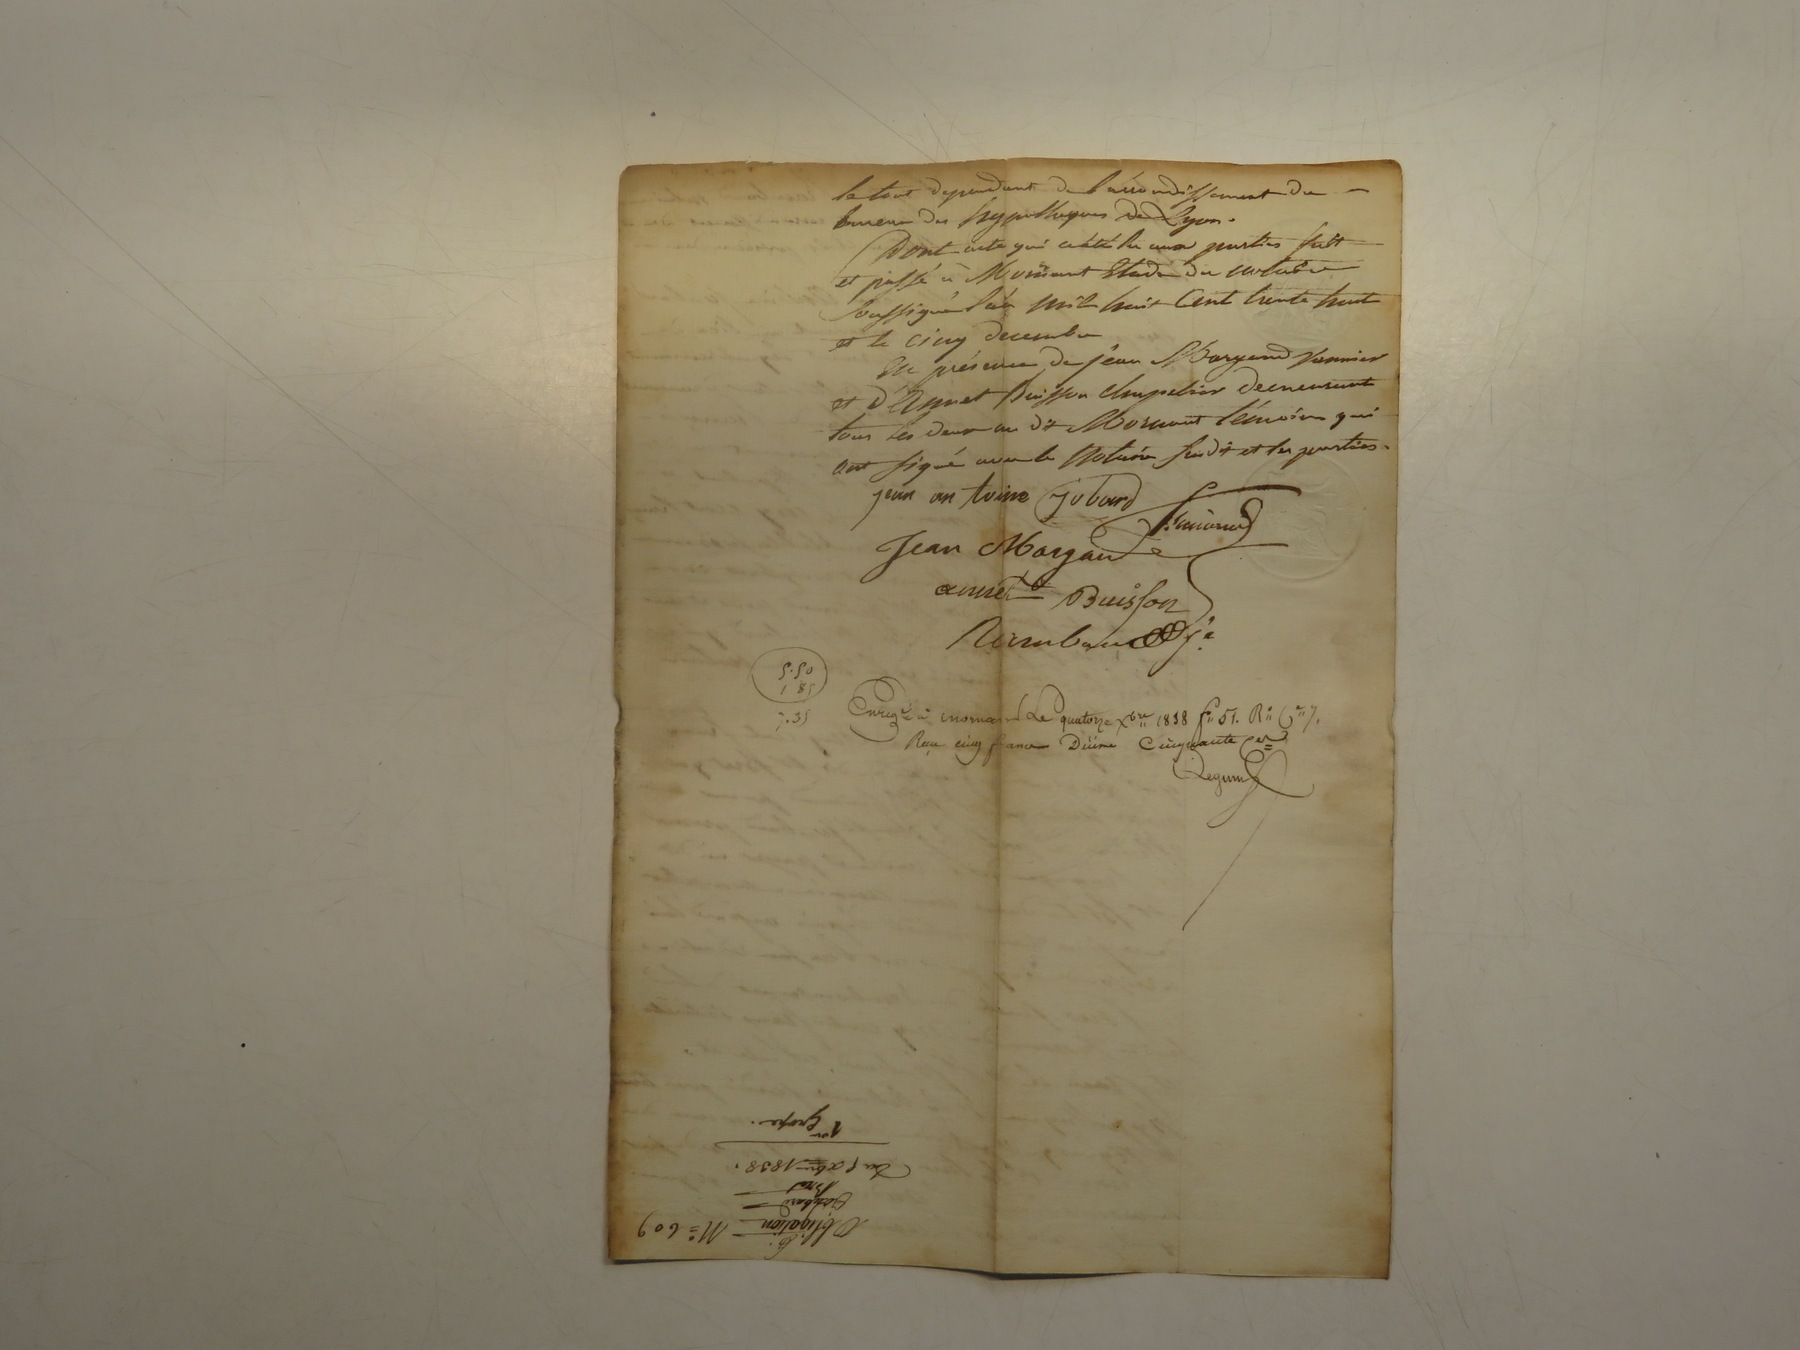 le tout dependant de l'arrondissement du
bureau des hypotheques de Lyon.
Dont acte qui a été lu aux parties fait
et passé à Mornant Etude du notaire
soussigné l'an mil huit cent trente huit
et le cinq decembre
En présence de Jean Morgand vannier
et d'Annet Buisson chapelier demeurant
tous les deux au dit Mornant témoins qui
ont signé avec le Notaire susdit et les parties.
jean an toine jobard
Jean Morgand
annet Buisson
5.50
1 85
7.35
Enregé à mornant Le quatorze Xbre 1838 f° 51. R° Ce 7.
Reçu cinq francs Dixme Cinquante ces
1ere Grosse.
Du 5 xbre 1838.
Obligation
N° 609